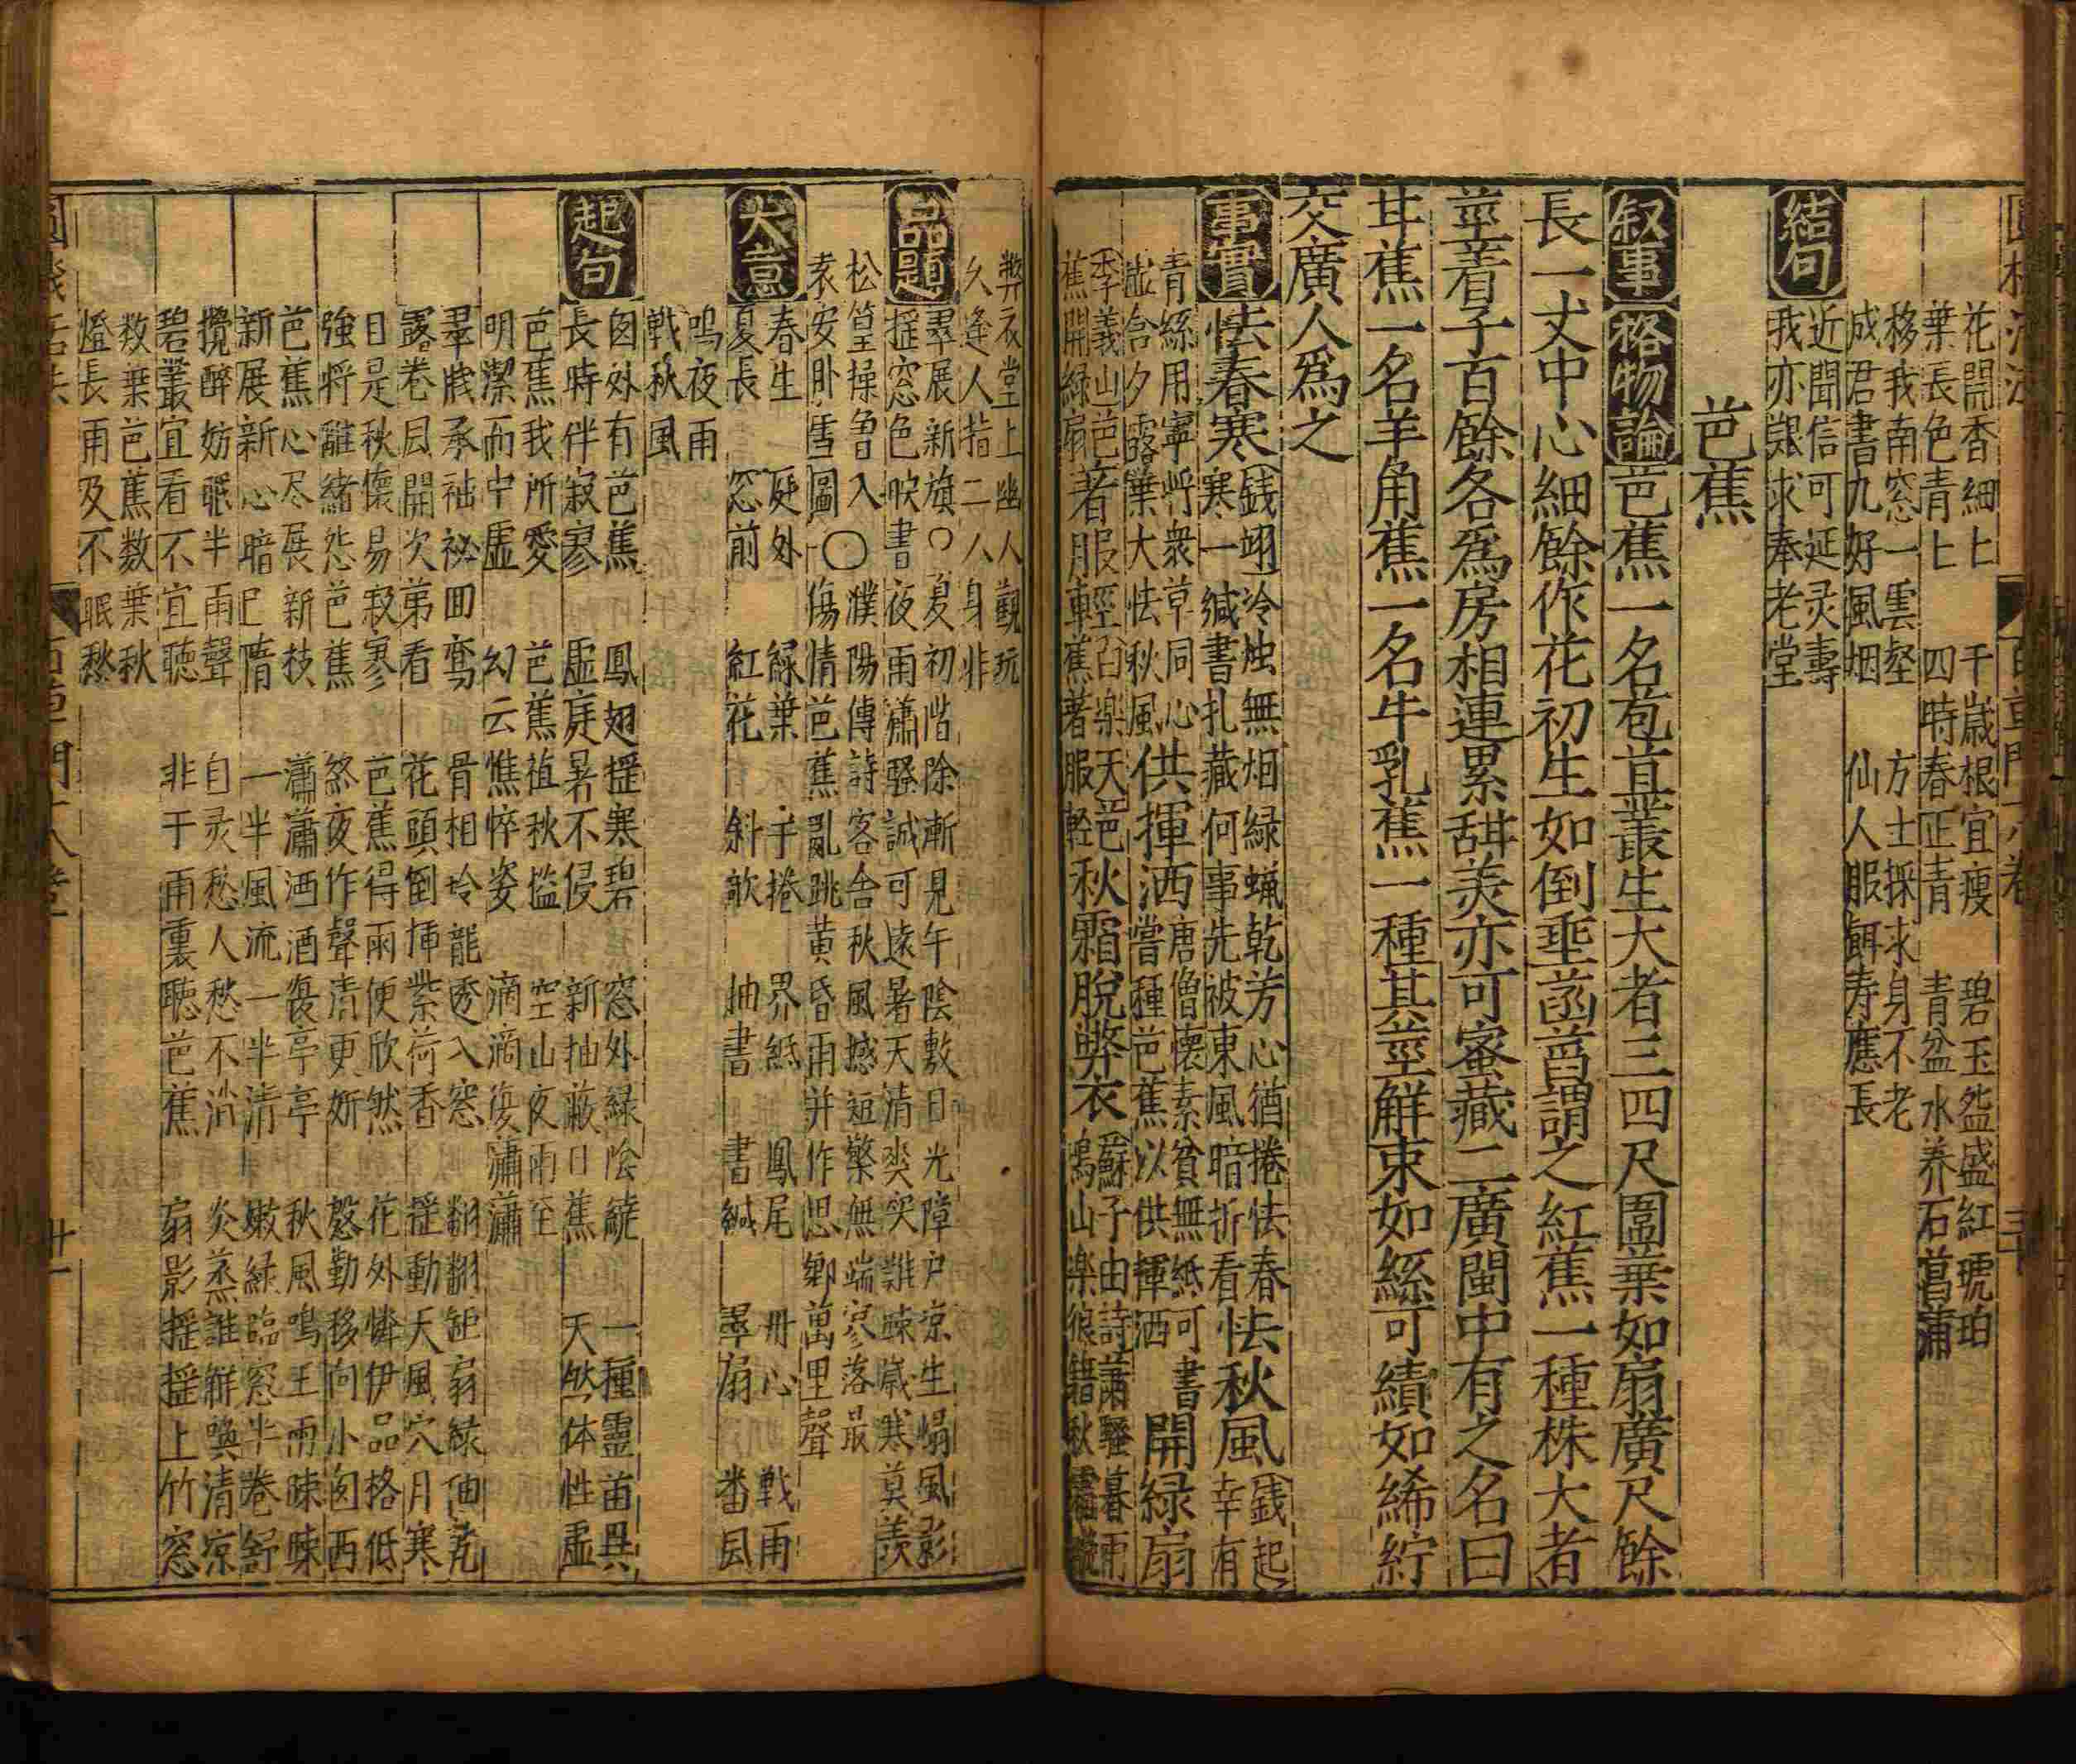 花開香細匕 千歲根宜瘦 碧玉盆盛紅琥珀
葉長色青匕 四時春正青 青盆水养石菖蒲
移我南窓一雲壑 方士採求身不老
成君書九好風烟 仙人服餌寿應長
結句
近聞信可延灵壽
我亦艱求奉老堂
芭蕉
叙事 格物論 芭蕉一名苞苴叢生大者三四尺圍葉如扇廣尺餘
長一丈中心細餘作花初生如倒垂菡萏謂之紅蕉一種株大者
莖着子百餘各爲房相連累甜美亦可蜜藏二廣閩中有之名曰
甘蕉一名羊角蕉一名牛乳蕉一種其莖解束如絲可績如絺紵
交廣人爲之
事實 怯春寒 錢翊 冷烛無烟緑蝋乾芳心猶捲怯春
寒一緘書扎藏何事先被東風暗折看 怯秋風 錢起 幸有
青絲用寧將衆草同心
虛含夕露葉大怯秋風 供揮洒 唐僧懷素貧無紙可書
嘗種芭蕉以供揮洒 開緑扇
季義山芭
蕉開緑扇 著服輕 白樂天芭
蕉著服輕 秋霜脫弊衣 蘇子由詩蕭騷暮雨
鳴山樂狼籍秋霜
弊衣堂上幽人觀玩
久逢人指二人身非
品題 翠展新旗○夏初階除漸見午陰敷日光障户凉生榻風影
摇窓色映書夜雨蕭騷誠可遠暑天清奕奕難踈歲寒莫羡
松篁操魯入〇濮陽傳詩客舍秋風撼短檠無端寥落最
袁安卧雪圖 傷情芭蕉亂跳黄昏雨并作思鄉萬里聲
大意
春生 庭外 緑葉 手捲 界紙 鳳尾 丹心 戰雨
夏長 窓前 紅花 斜歆 抽書 書緘 翠扇 番風
鳴夜雨
戰秋風
起句
囱外有芭蕉 鳳翅摇寒碧 窓外緑陰繞 一種靈苗異
長時伴寂寥 虛庭暑不侵 新抽蔽日蕉 天然体性虛
芭蕉我所愛 芭蕉植秋檻 空山夜雨至
明潔而中虛 幻云憔悴姿 滴滴復瀟瀟
翠牋承袖祕回鸞 骨相玲龍透入窓 翻翻
露卷風開次第看 花頭倒揷紫荷香 摇動天風穴月寒
日是秋懷易寂寥 芭蕉得雨便欣然 花外憐伊品格低
強将離緒怨芭蕉 終夜作聲清更妍 慇勤移向小囱西
芭蕉心尽展新枝 瀟瀟洒洒復亭亭 秋風鳴王雨踈踈
新展新心暗已隋 一半風流一半清 嫩緑臨窓半卷舒
攪醉妨眠半雨聲 自灵愁人愁不消 炎蒸誰解喚清凉
碧叢宜看不宜聽 非干雨裏聽芭蕉 扇影摇摇上竹窓
数葉芭蕉数葉秋
燈長雨及不眠愁